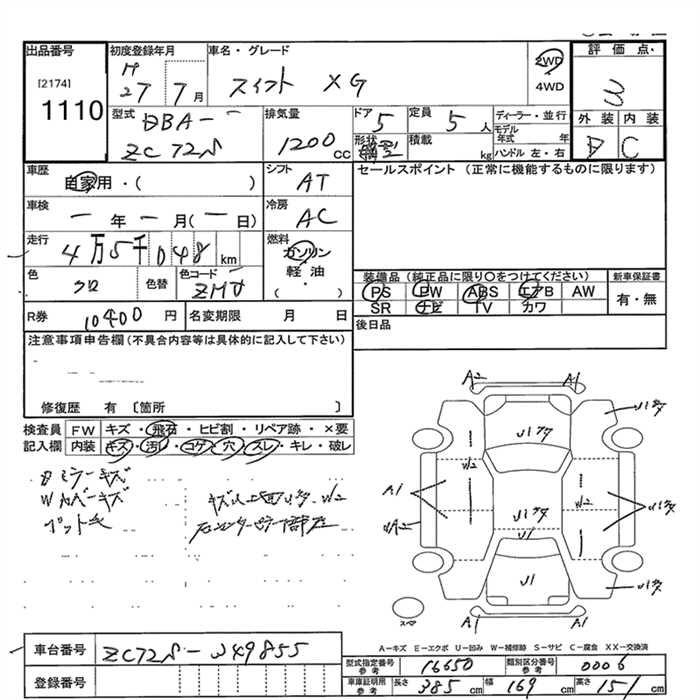 出品番号
[2174]
1110
初度登録年月
H
27 7月
車名・グレード
スイフト XG
2WD
4WD
評価点・
3
外装 内装
D C
型式
DBA-
ZC72S
排気量
1200 cc
ドア 5
定員 5 人
形状
積載 kg
ディーラー・並行
モデル年式 年
ハンドル 左・右
車歴
自家用・( )
シフト
AT
セールスポイント (正常に機能するものに限ります)
車検
- 年 - 月 ( - 日)
冷房
AC
走行
4万5千048 km
燃料
ガソリン
軽油
・( )・
色
クロ
色替
色コード
ZMV
装備品 (純正品に限り○をつけてください)
PS PW ABS エアB AW
SR ナビ TV カワ
新車保証書
有・無
R券 10400 円
名変期限 月 日
後日品
注意事項申告欄 (不具合内容等は具体的に記入して下さい)
修復歴 有 〔箇所 〕
検査員記入欄
FW キズ・飛石・ヒビ割・リペア跡・×要
内装 キズ・汚レ・コゲ・穴・スレ・キレ・破レ
ミラーキズ
Wカバーキズ
A2 A1
U1
A1
W2
A1 A1
スペア
A-キズ E-エクボ U-凹み W-補修跡 S-サビ C-腐食 XX-交換済
車台番号 ZC72S-349855
登録番号
型式指定番号 参考 16650
類別区分番号 参考 0006
車庫証明用 参考 長さ 385 cm 幅 169 cm 高さ 151 cm